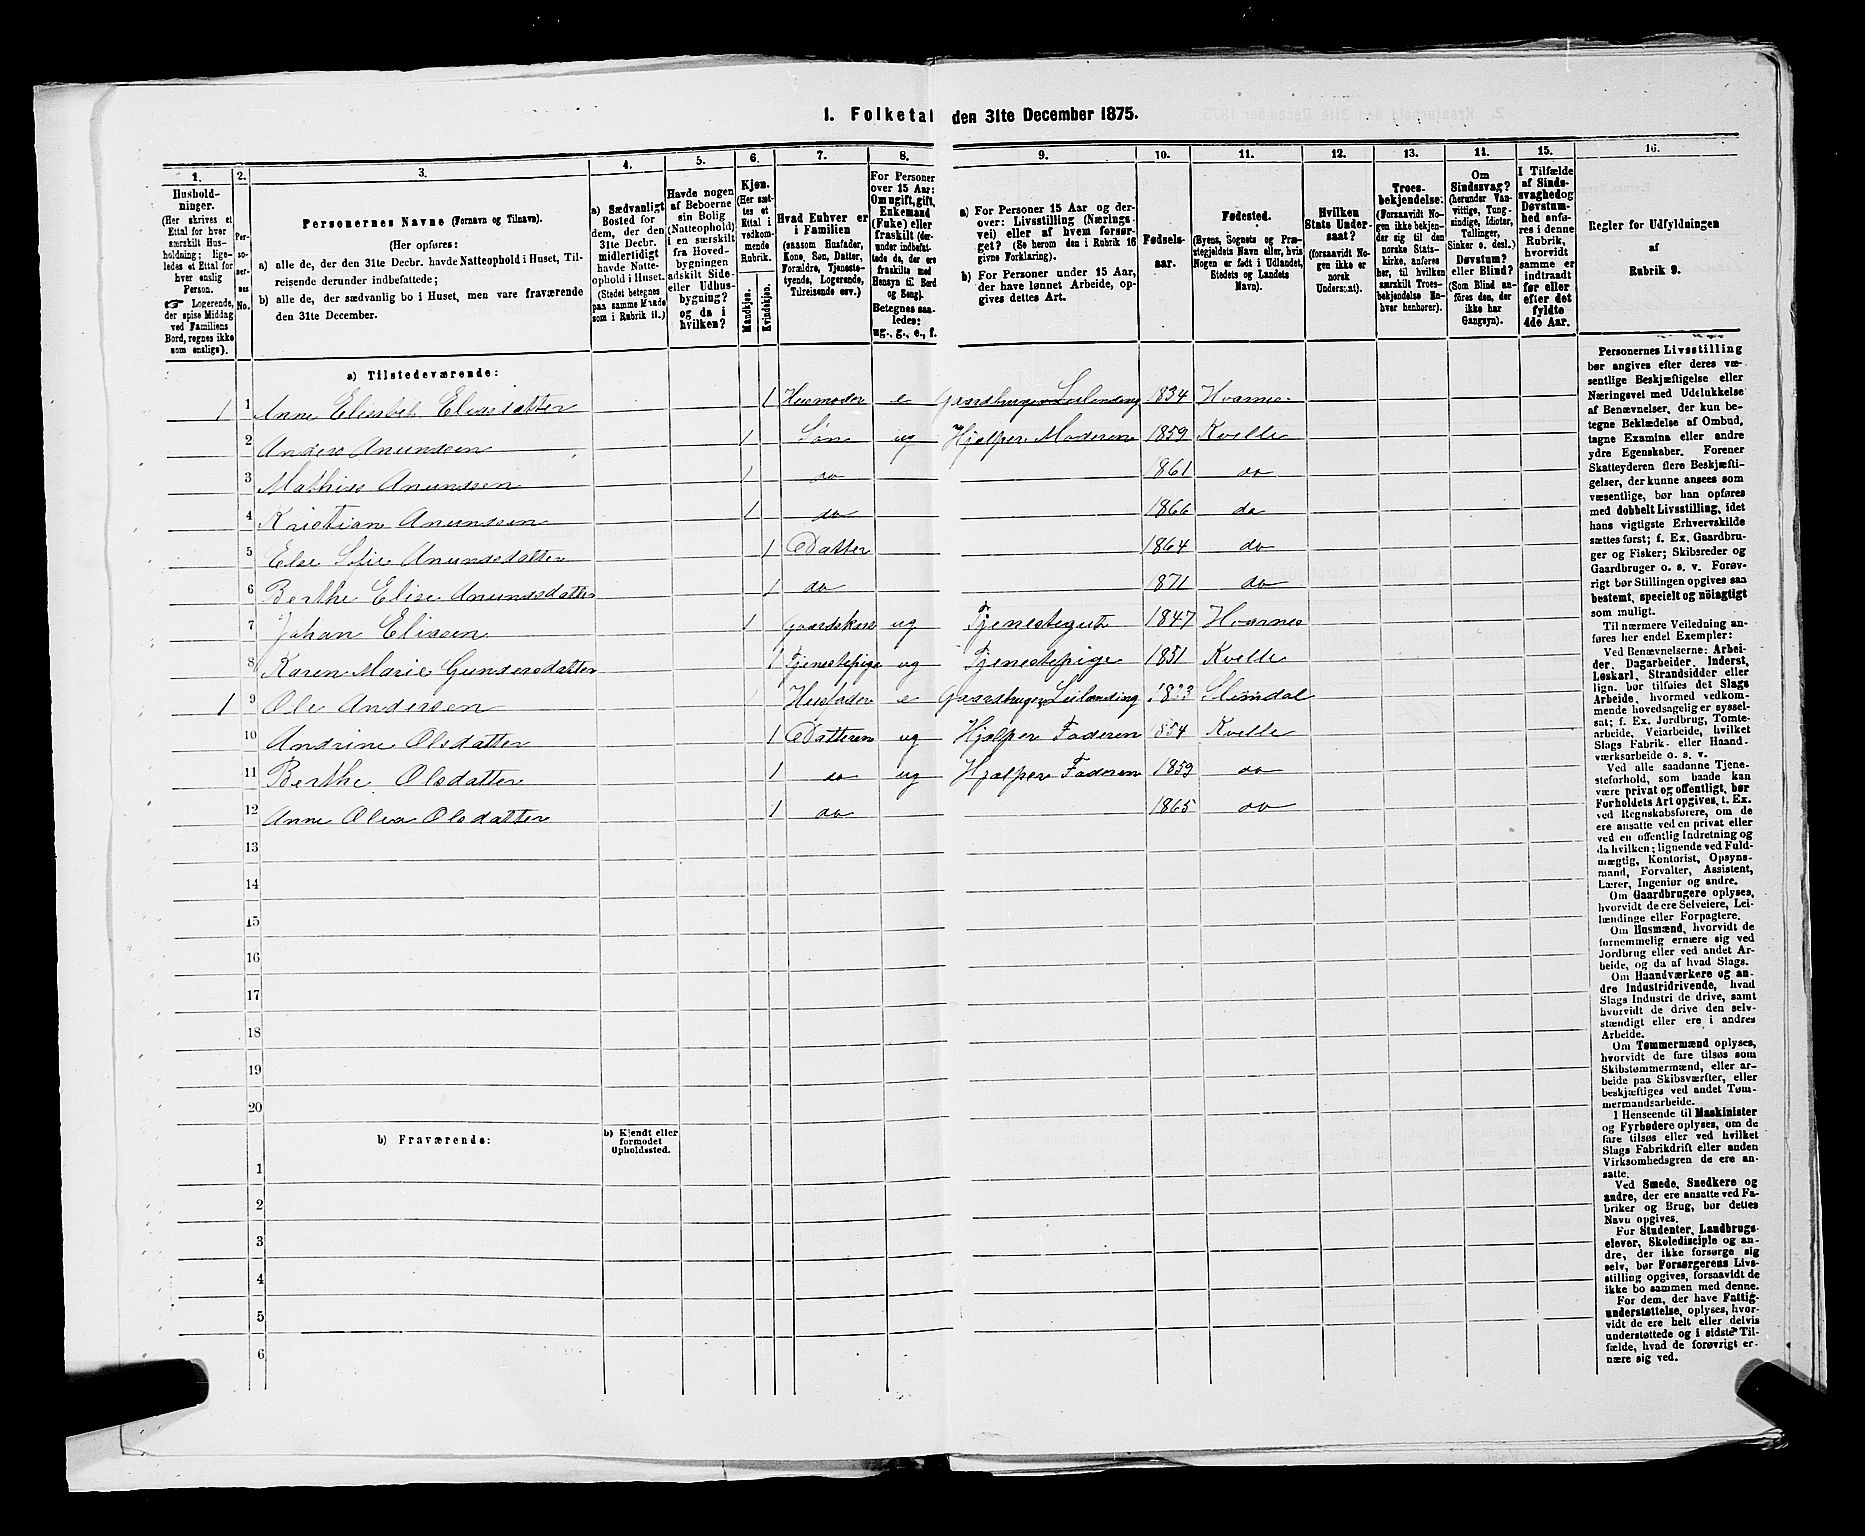 1. Folketal den 31te December 1875.
1. 2. 3. 4. 5. 6. 7. 8. 9. 10. 11. 12. 13. 14. 15. 16.
Hushold-
ninger.
(Her skrives et
Ettal for hver
særskilt Hus-
holdning; lige-
ledes et Ettal for
hver enslig
Person.
☞ Logerende,
der spise Middag
ved Familiens
Bord, regnes ikke
som enslige).
Per-
so-
ner-
nes
No.
Personernes Navne (Fornavn og Tilnavn).
(Her opføres:
a) alle de, der den 31te Decbr. havde Natteophold i Huset, Til-
reisende derunder indbefattede;
b) alle de, der sædvanlig bo i Huset, men vare fraværende
den 31te December.
a) Sædvanligt
Bosted for
dem, der den
31te Decbr.
midlertidigt
havde Natte-
ophold i Huset.
(Stedet betegnes
paa samme Maade
som i Rubrik 11.)
Havde nogen
af Beboerne
sin Bolig
(Natteophold)
i en særskilt
fra Hoved-
bygningen
adskilt Side-
eller Udhus-
bygning?
og da i
hvilken?
Kjøn.
(Her sæt-
tes et
Ettal i
vedkom-
mende
Rubrik.
Mandkjøn.
Kvindekjøn.
Hvad Enhver er
i Familien
(saasom Husfader,
Kone, Søn, Datter,
Forældre, Tjeneste-
tyende, Logerende,
Tilreisende osv.)
For Personer
over 15 Aar:
Om ugift, gift,
Enkemand
(Enke) eller
fraskilt (der-
under indbefat-
tede de, der ere
fraskilte med
Hensyn til Bord
og Seng).
Betegnes saa-
ledes:
ug., g., e., f.
a) For Personer 15 Aar og der-
over: Livsstilling (Nærings-
vei) eller af hvem forsør-
get? (Se herom den i Rubrik 16
givne Forklaring).
b) For Personer under 15 Aar,
der have lønnet Arbeide, op-
gives dettes Art.
Fødsels-
aar.
Fødested.
(Byens, Sognets og Præ-
stegjeldets Navn eller, hvis
Nogen er født i Udlandet,
Stedets og Landets
Navn).
Hvilken
Stats Under-
saat?
(forsaavidt No-
gen ikke er
norsk
Undersaat).
Troes-
bekjendelse:
(Forsaavidt No-
gen ikke bekjen-
der sig til den
norske Stats-
kirke, anføres
her, til hvilken
særskilt Troes-
bekjendelse En-
hver henhører).
Om
Sindssvag?
(herunder Van-
vittige, Tung-
sindige, Idioter,
Tullinger,
Sinker o. desl.)
Døvstum?
eller Blind?
(Som Blind an-
føres den, der
ikke har
Gangsyn).
I Tilfælde
af Sinds-
svaghed og
Døvstum-
hed anfø-
res i denne
Rubrik,
hvorvidt
samme er
indtraadt
før eller
efter det
fyldte
4de Aar.
Regler for Udfyldningen
af
Rubrik 9.
a) Tilstedeværende:
1 1 Anne Elisabet Elisedatter 1 Husmoder e Gaardbruger Leilending 1834 Hvarnes
2 Anders Anundsen 1 Søn ug Hjælper Moderen 1859 Kvelle
3 Mathias Anundsen 1 do 1861 do
4 Kristian Anundsen 1 do 1866 do
5 Else Sofie Anundsdatter 1 Datter 1864 do
6 Berthe Elise Anundsdatter 1 do 1871 do
7 Johan Elissen 1 Gaardskar ug Tjenestegut 1847 Hvarnes
8 Karen Marie Gundersdatter 1 Tjenestepige ug Tjenestepige 1851 Kvelle
1 9 Ole Andersen 1 Husfader e Gaardbruger Leilending Slemdal
10 Andrine Olsdatter 1 Datteren ug Hjælper Faderen 1854 Kvelle
11 Berthe Olsdatter 1 do ug Hjælper Faderen 1859 do
12 Anne Olea Olsdatter 1 do 1865 do
13
14
15
16
17
18
19
20
b) Fraværende:
b) Kjendt eller
formodet
Opholdssted.
1
2
3
4
5
6
Personernes Livsstilling
bør angives efter deres væ-
sentlige Beskjæftigelse eller
Næringsvei med Udelukkelse
af Benævnelser, der kun be-
tegne Beklædelse af Ombud,
tagne Examina eller andre
ydre Egenskaber. Forener
Skatteyderen flere Beskjæfti-
gelser, der kunne ansees som
væsentlige, bør han opføres
med dobbelt Livsstilling, idet
hans vigtigste Erhvervskilde
sættes først; f. Ex. Gaardbru-
ger og Fisker; Skibsreder og
Gaardbruger o. s. v. Forøv-
rigt bør Stillingen opgives saa
bestemt, specielt og nøiagtigt
som muligt.
Til nærmere Veiledning an-
føres her endel Exempler:
Ved Benævnelserne: Arbei-
der, Dagarbeider, Inderst,
Løskarl, Strandsidder eller
lign. bør tilføies det Slags
Arbeide, hvormed vedkom-
mende hovedsagelig er syssel-
sat; f. Ex. Jordbrug, Tomte-
arbeide, Veiarbeide, hvilket
Slags Fabrik- eller Haand-
værksarbeide o. s. v.
Ved alle saadanne Tjene-
steforhold, som baade kan
være privat og offentligt, bør
Forholdets Art opgives, t. Ex.
ved Regnskabsførere, om de
ere ansatte ved en privat eller
ved en offentlig Indretning og
da hvilken; lignende ved Fuld-
mægtig, Kontorist, Opsyns-
mand, Forvalter, Assistent,
Lærer, Ingeniør og andre.
Om Gaardbrugere oplyses,
hvorvidt de ere Selveiere, Lei-
lændinge eller Forpagtere.
Om Husmænd, hvorvidt de
fornemmelig ernære sig ved
Jordbrug eller ved andet Ar-
beide, og da af hvad Slags.
Om Haandværkere og an-
dre Industridrivende, hvad
Slags Industri de drive, samt
hvorvidt de drive den selv-
stændigt eller ere i andres
Arbeide.
Om Tømmermænd oplyses,
hvorvidt de fare tilsøs som
Skibstømmermænd, eller ar-
beide paa Skibsværfter, eller
beskjæftiges ved andet Tøm-
mermandsarbeide.
I Henseende til Maskinister
og Fyrbødere oplyses, om de
fare tilsøs eller ved hvilket
Slags Fabrikdrift eller anden
Virksomhedsgren de ere an-
satte.
Ved Smede, Snedkere og
andre, der ere ansatte ved Fa-
briker og Brug, bør dettes
Navn opgives.
For Studenter, Landbrugs-
elever, Skoledisciple og an-
dre, der ikke forsørge sig
selv, bør Forsørgerens Livs-
stilling opgives, forsaavidt de
ikke bo sammen med denne.
For dem, der have Fattig-
understøttelse, oplyses, hvor-
vidt de ere helt eller delvis
understøttede og i sidste Til-
fælde, hvad de forøvrigt er-
nære sig ved.